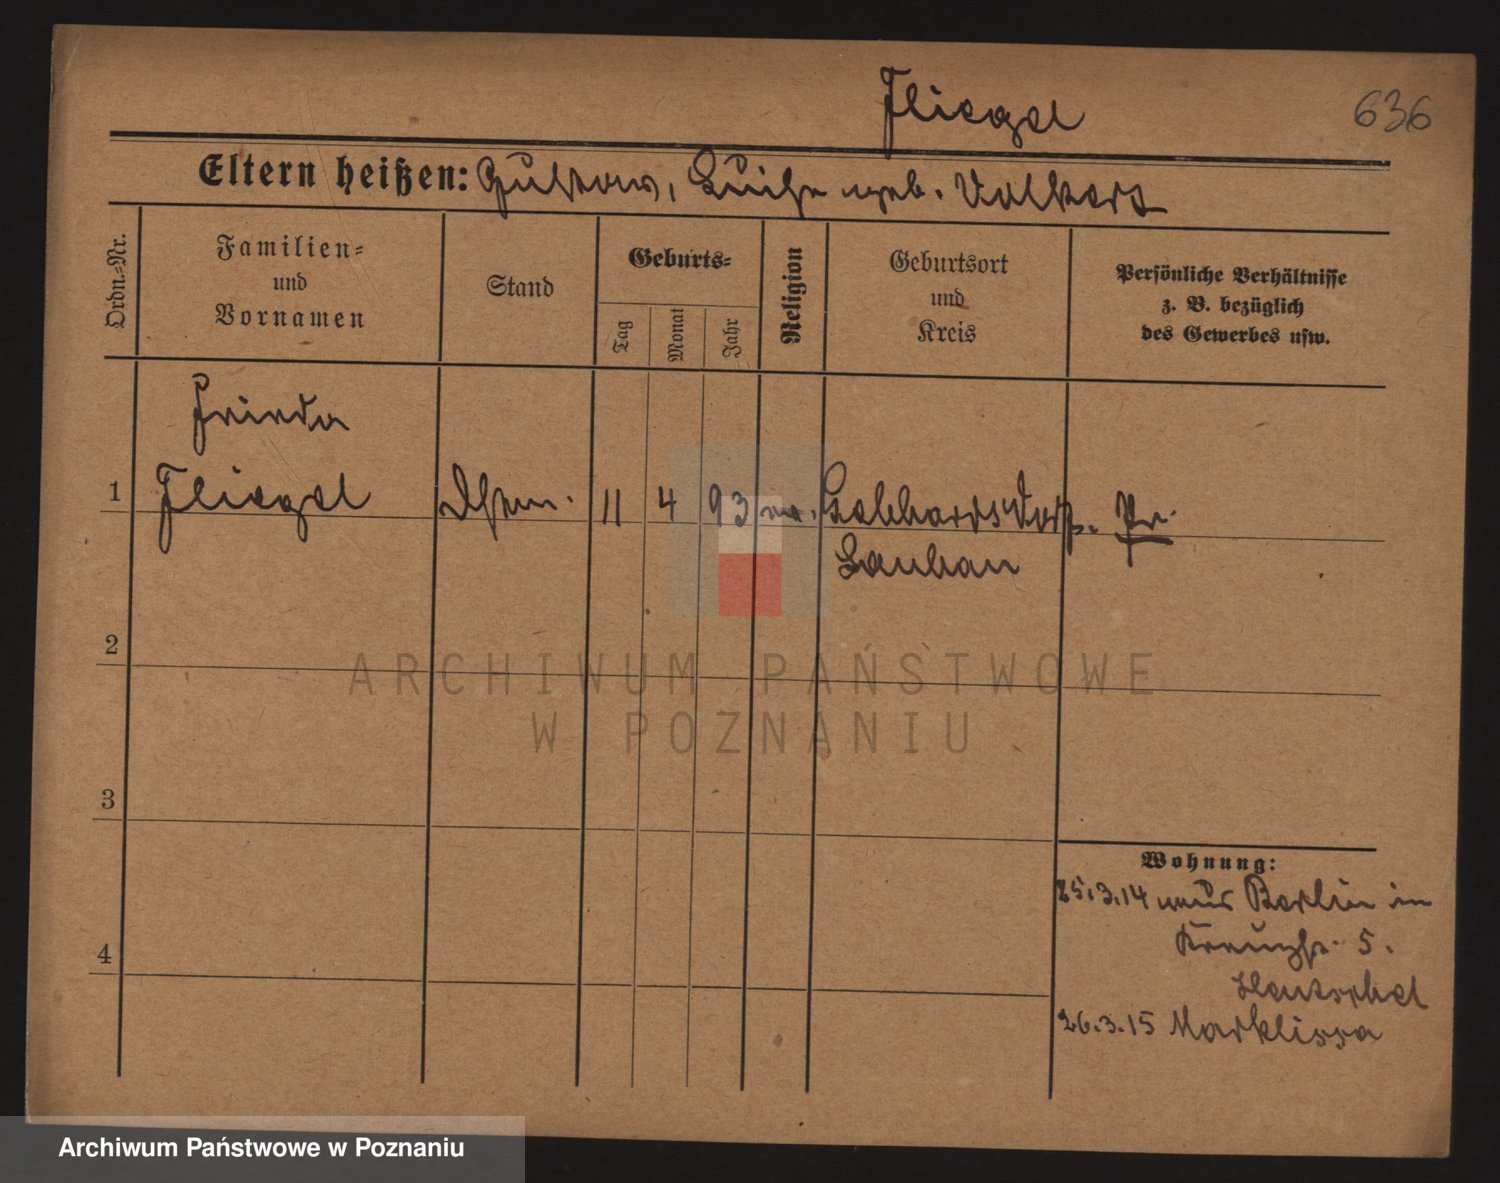 Fliegel
636
Eltern heißen: Gustav, Luise geb. Volkert
Ordn.-Nr.
Familien-
und
Vornamen
Stand
Geburts-
Tag
Monat
Jahr
Religion
Geburtsort
und
Kreis
Persönliche Verhältnisse
z. B. bezüglich
des Gewerbes usw.
Frieda
1 Fliegel 11 4 93 ev. Gebhardsdorf. Pr.
Lauban
2
ARCHIWUM PAŃSTWOWE
W POZNANIU
3
4
Wohnung:
25.3.14 aus Berlin in
Kreuzstr. 5.
Hentschel
26.3.15 Marklissa
Archiwum Państwowe w Poznaniu